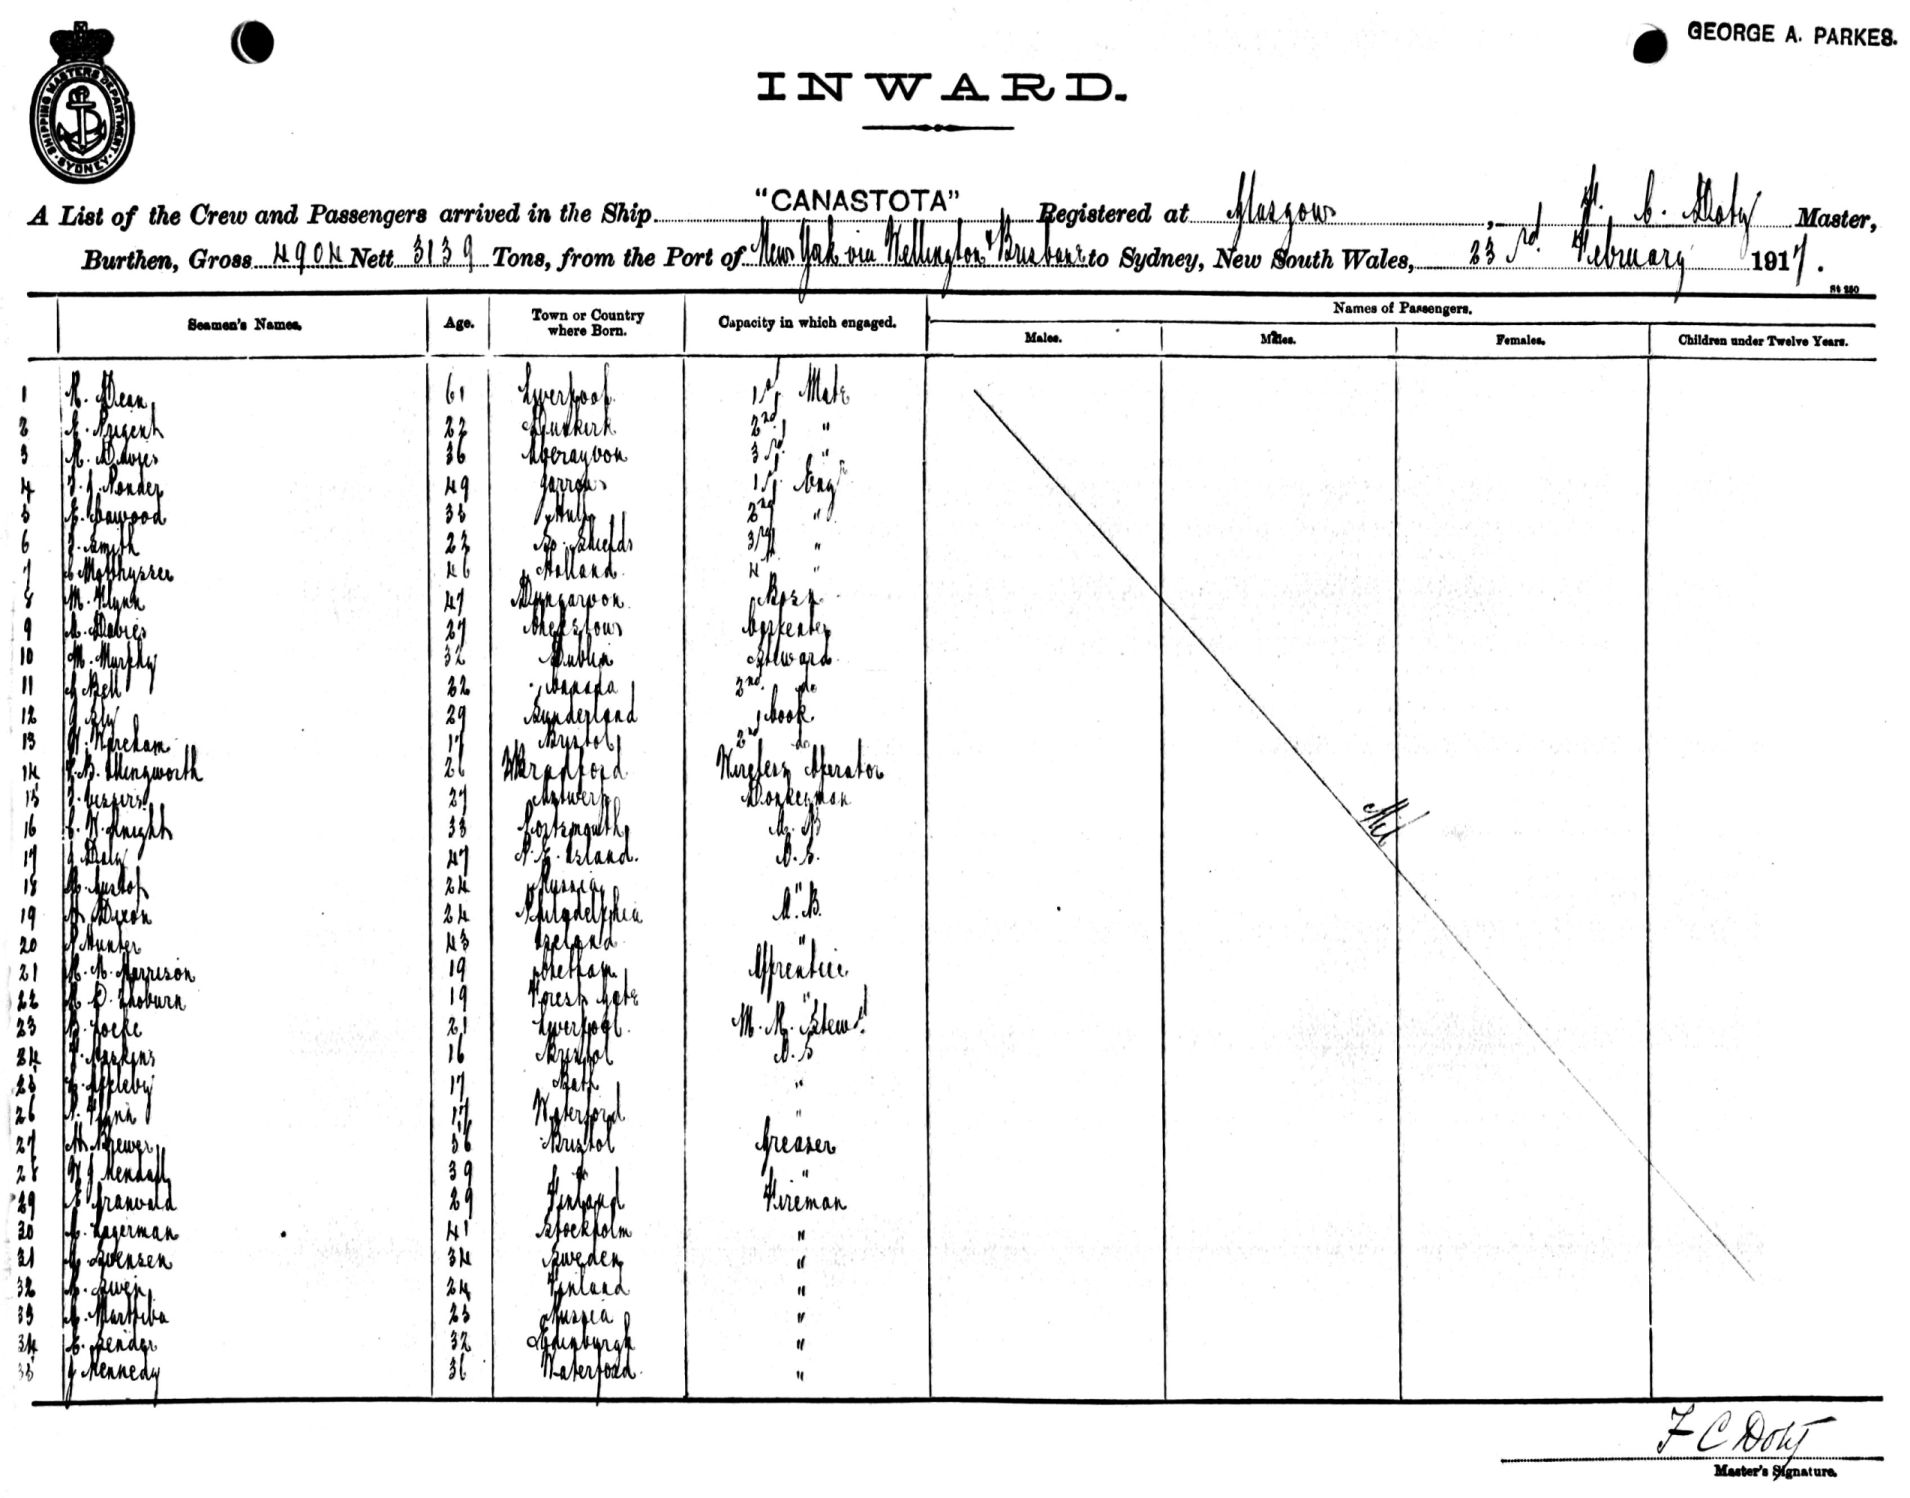 GEORGE A. PARKES.
SHIPPING MASTERS DEPARTMENT SYDNEY
INWARD.
A List of the Crew and Passengers arrived in the Ship "CANASTOTA" Registered at Glasgow, F. C. Doty Master,
Burthen, Gross 4904 Nett 3139 Tons, from the Port of New York via Wellington & Brisbane to Sydney, New South Wales, 23rd February 1917.
St 250
Seamen's Names. Age. Town or Country where Born. Capacity in which engaged. Names of Passengers.
Males. Males. Females. Children under Twelve Years.
1 R. Dean 61 Liverpool 1st Mate
2 E. Nugent 22 Dunkirk 2nd "
3 R. Davies 36 Aberavon 3rd "
4 49 Jarrow 1st Engr
5 Hull 2nd "
6 Smith 22 So. Shields 3rd "
7 46 Holland 4 "
8 M. Flynn 47 Dungarvon Bosn
9 Davies 27 Chepstow Carpenter
10 M. Murphy 32 Dublin Steward
11 J Bell 22 Canada 2nd do
12 J Sly 29 Sunderland Cook
13 Wareham 17 Bristol 2nd do
14 Illingworth 26 Bradford Wireless Operator
15 27 Antwerp Donkeyman
16 C. W. Knight 33 Portsmouth A. B
17 J Daly 47 P. E. Island. O. S.
18 Gustaf 24 Russia "
19 Dixon 24 Philadelphia A. B.
20 Hunter 43 Ireland "
21 Morrison 19 Chatham Apprentice
22 Thoburn 19 Forest Gate "
23 Locke 21 Liverpool M. R. Stewd
24 Haskins 16 Bristol O. S
25 Appleby 17 Bath "
26 Flynn 17 Waterford "
27 Brewer 36 Bristol Greaser
28 W J Kendall 39 "
29 Granvald 29 Finland Fireman
30 Lagerman 41 Stockholm "
31 Svensen 34 Sweden "
32 24 Finland "
33 23 Russia "
34 32 Edinburgh "
35 J Kennedy 36 Waterford "
Nil
F C Doty
Master's Signature.